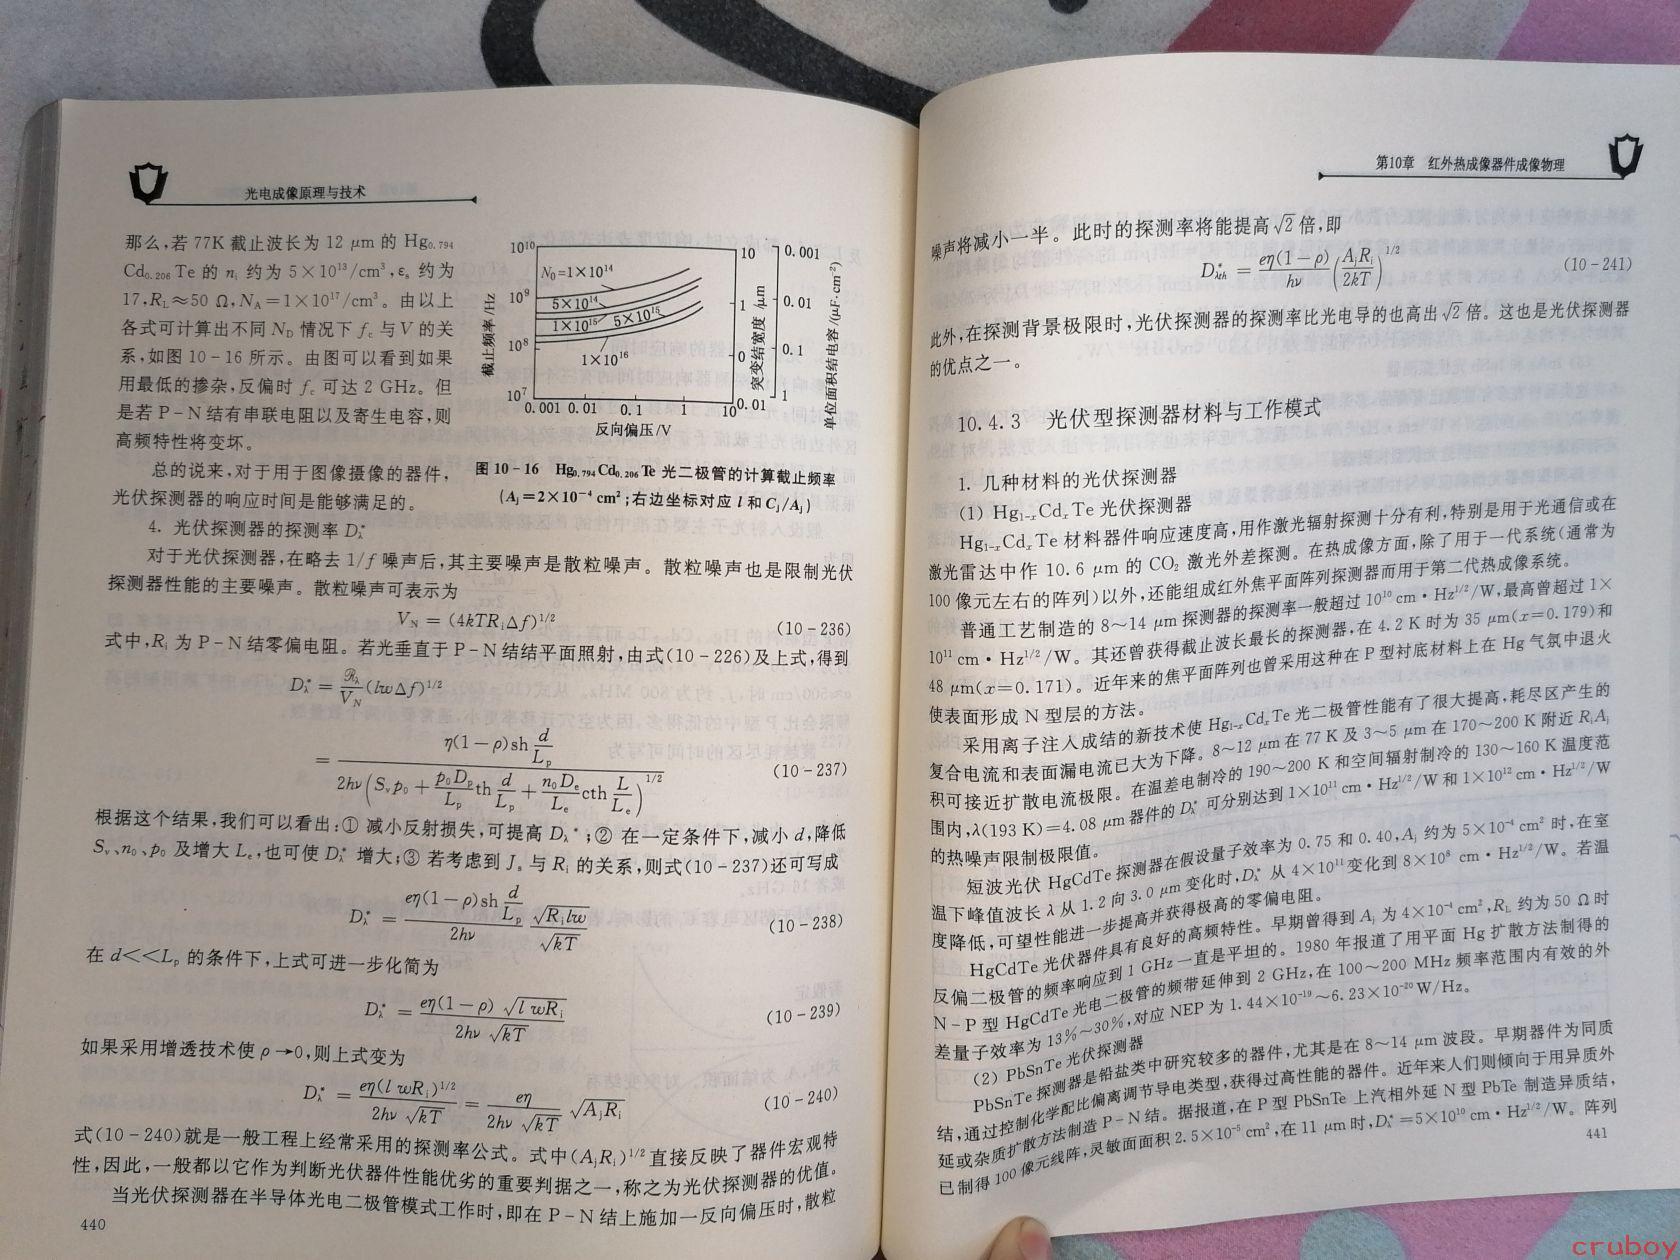 光电成像原理与技术
那么,若 77K 截止波长为 12 μm 的 Hg₀.₇₉₄
Cd₀.₂₀₆Te 的 nᵢ 约为 5×10¹³/cm³,εₛ 约为
17,R_L≈50 Ω,N_A=1×10¹⁷/cm³。由以上
各式可计算出不同 N_D 情况下 f_c 与 V 的关
系,如图 10-16 所示。由图可以看到如果
用最低的掺杂,反偏时 f_c 可达 2 GHz。但
是若 P-N 结有串联电阻以及寄生电容,则
高频特性将变坏。
总的说来,对于用于图像摄像的器件,
光伏探测器的响应时间是能够满足的。
截止频率/Hz
10¹⁰
10⁹
10⁸
10⁷
N₀=1×10¹⁴
5×10¹⁴
1×10¹⁵
5×10¹⁵
1×10¹⁶
0.001 0.01 0.1 1 10
反向偏压/V
10
1
0
0.01
突变结宽度/μm
0.001
0.01
0.1
1
单位面积结电容/(μF·cm²)
图 10-16 Hg₀.₇₉₄Cd₀.₂₀₆Te 光二极管的计算截止频率
(Aⱼ=2×10⁻⁴ cm²;右边坐标对应 l 和 Cⱼ/Aⱼ)
4. 光伏探测器的探测率 D_λ*
对于光伏探测器,在略去 1/f 噪声后,其主要噪声是散粒噪声。散粒噪声也是限制光伏
探测器性能的主要噪声。散粒噪声可表示为
V_N = (4kTRᵢΔf)^{1/2} (10-236)
式中,Rᵢ 为 P-N 结零偏电阻。若光垂直于 P-N 结结平面照射,由式(10-226)及上式,得到
D_λ* = ℛ_λ/V_N (lwΔf)^{1/2}
= η(1-ρ)sh d/L_p / 2hν(S_v p₀ + p₀D_p/L_p th d/L_p + n₀D_e/L_e cth L/L_e)^{1/2} (10-237)
根据这个结果,我们可以看出:① 减小反射损失,可提高 D_λ*;② 在一定条件下,减小 d,降低
S_v、n₀、p₀ 及增大 L_e,也可使 D_λ* 增大;③ 若考虑到 Jₛ 与 Rᵢ 的关系,则式(10-237)还可写成
D_λ* = eη(1-ρ)sh d/L_p / 2hν √(Rᵢlw)/√(kT) (10-238)
在 d<<L_p 的条件下,上式可进一步化简为
D_λ* = eη(1-ρ)√(l wRᵢ) / 2hν √(kT) (10-239)
如果采用增透技术使 ρ→0,则上式变为
D_λ* = eη(l wRᵢ)^{1/2} / 2hν √(kT) = eη / 2hν √(kT) √(AⱼRᵢ) (10-240)
式(10-240)就是一般工程上经常采用的探测率公式。式中(AⱼRᵢ)^{1/2}直接反映了器件宏观特
性,因此,一般都以它作为判断光伏器件性能优劣的重要判据之一,称之为光伏探测器的优值。
当光伏探测器在半导体光电二极管模式工作时,即在 P-N 结上施加一反向偏压时,散粒
440
第10章 红外热成像器件成像物理
噪声将减小一半。此时的探测率将能提高√2倍,即
D_λth* = eη(1-ρ)/hν (AⱼRᵢ/2kT)^{1/2} (10-241)
此外,在探测背景极限时,光伏探测器的探测率比光电导的也高出√2倍。这也是光伏探测器
的优点之一。
10.4.3 光伏型探测器材料与工作模式
1. 几种材料的光伏探测器
(1) Hg₁₋ₓCdₓTe 光伏探测器
Hg₁₋ₓCdₓTe 材料器件响应速度高,用作激光辐射探测十分有利,特别是用于光通信或在
激光雷达中作 10.6 μm 的 CO₂ 激光外差探测。在热成像方面,除了用于一代系统(通常为
100 像元左右的阵列)以外,还能组成红外焦平面阵列探测器而用于第二代热成像系统。
普通工艺制造的 8~14 μm 探测器的探测率一般超过 10¹⁰ cm·Hz^{1/2}/W,最高曾超过 1×
10¹¹ cm·Hz^{1/2}/W。其还曾获得截止波长最长的探测器,在 4.2 K 时为 35 μm(x=0.179)和
48 μm(x=0.171)。近年来的焦平面阵列也曾采用这种在 P 型衬底材料上在 Hg 气氛中退火
使表面形成 N 型层的方法。
采用离子注入成结的新技术使 Hg₁₋ₓCdₓTe 光二极管性能有了很大提高,耗尽区产生的
复合电流和表面漏电流已大为下降。8~12 μm 在 77 K 及 3~5 μm 在 170~200 K 附近 RᵢAⱼ
积可接近扩散电流极限。在温差电制冷的 190~200 K 和空间辐射制冷的 130~160 K 温度范
围内,λ(193 K)=4.08 μm 器件的 D_λ* 可分别达到 1×10¹¹ cm·Hz^{1/2}/W 和 1×10¹² cm·Hz^{1/2}/W
的热噪声限制极限值。
短波光伏 HgCdTe 探测器在假设量子效率为 0.75 和 0.40,Aⱼ 约为 5×10⁻⁴ cm² 时,在室
温下峰值波长 λ 从 1.2 向 3.0 μm 变化时,D_λ* 从 4×10¹¹变化到 8×10⁸ cm·Hz^{1/2}/W。若温
度降低,可望性能进一步提高并获得极高的零偏电阻。
HgCdTe 光伏器件具有良好的高频特性。早期曾得到 Aⱼ 为 4×10⁻⁴ cm²,R_L 约为 50 Ω 时
反偏二极管的频率响应到 1 GHz 一直是平坦的。1980 年报道了用平面 Hg 扩散方法制得的
N-P 型 HgCdTe 光电二极管的频带延伸到 2 GHz,在 100~200 MHz 频率范围内有效的外
差量子效率为 13%~30%,对应 NEP 为 1.44×10⁻¹⁹~6.23×10⁻²⁰W/Hz。
(2) PbSnTe 光伏探测器
PbSnTe 探测器是铅盐类中研究较多的器件,尤其是在 8~14 μm 波段。早期器件为同质
结,通过控制化学配比偏离调节导电类型,获得过高性能的器件。近年来人们则倾向于用异质外
延或杂质扩散方法制造 P-N 结。据报道,在 P 型 PbSnTe 上汽相外延 N 型 PbTe 制造异质结,
已制得 100 像元线阵,灵敏面面积 2.5×10⁻⁵ cm²,在 11 μm 时,D_λ*=5×10¹⁰ cm·Hz^{1/2}/W。阵列
441
cruboy